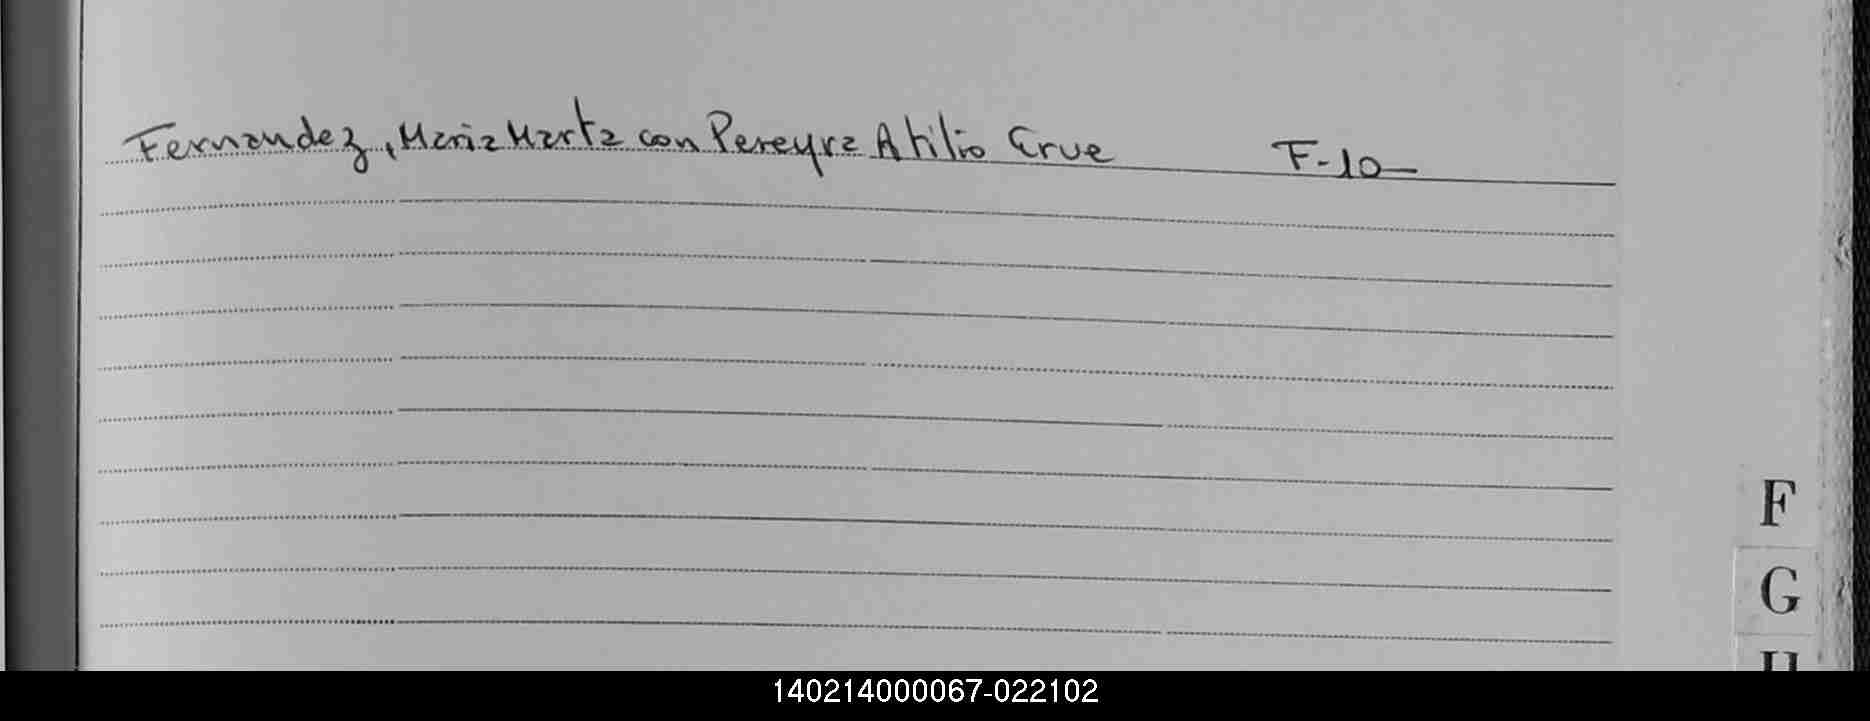 Fernandez, Maria Marta con Pereyra Atilio Crue F-10
F
G
H
140214000067-022102